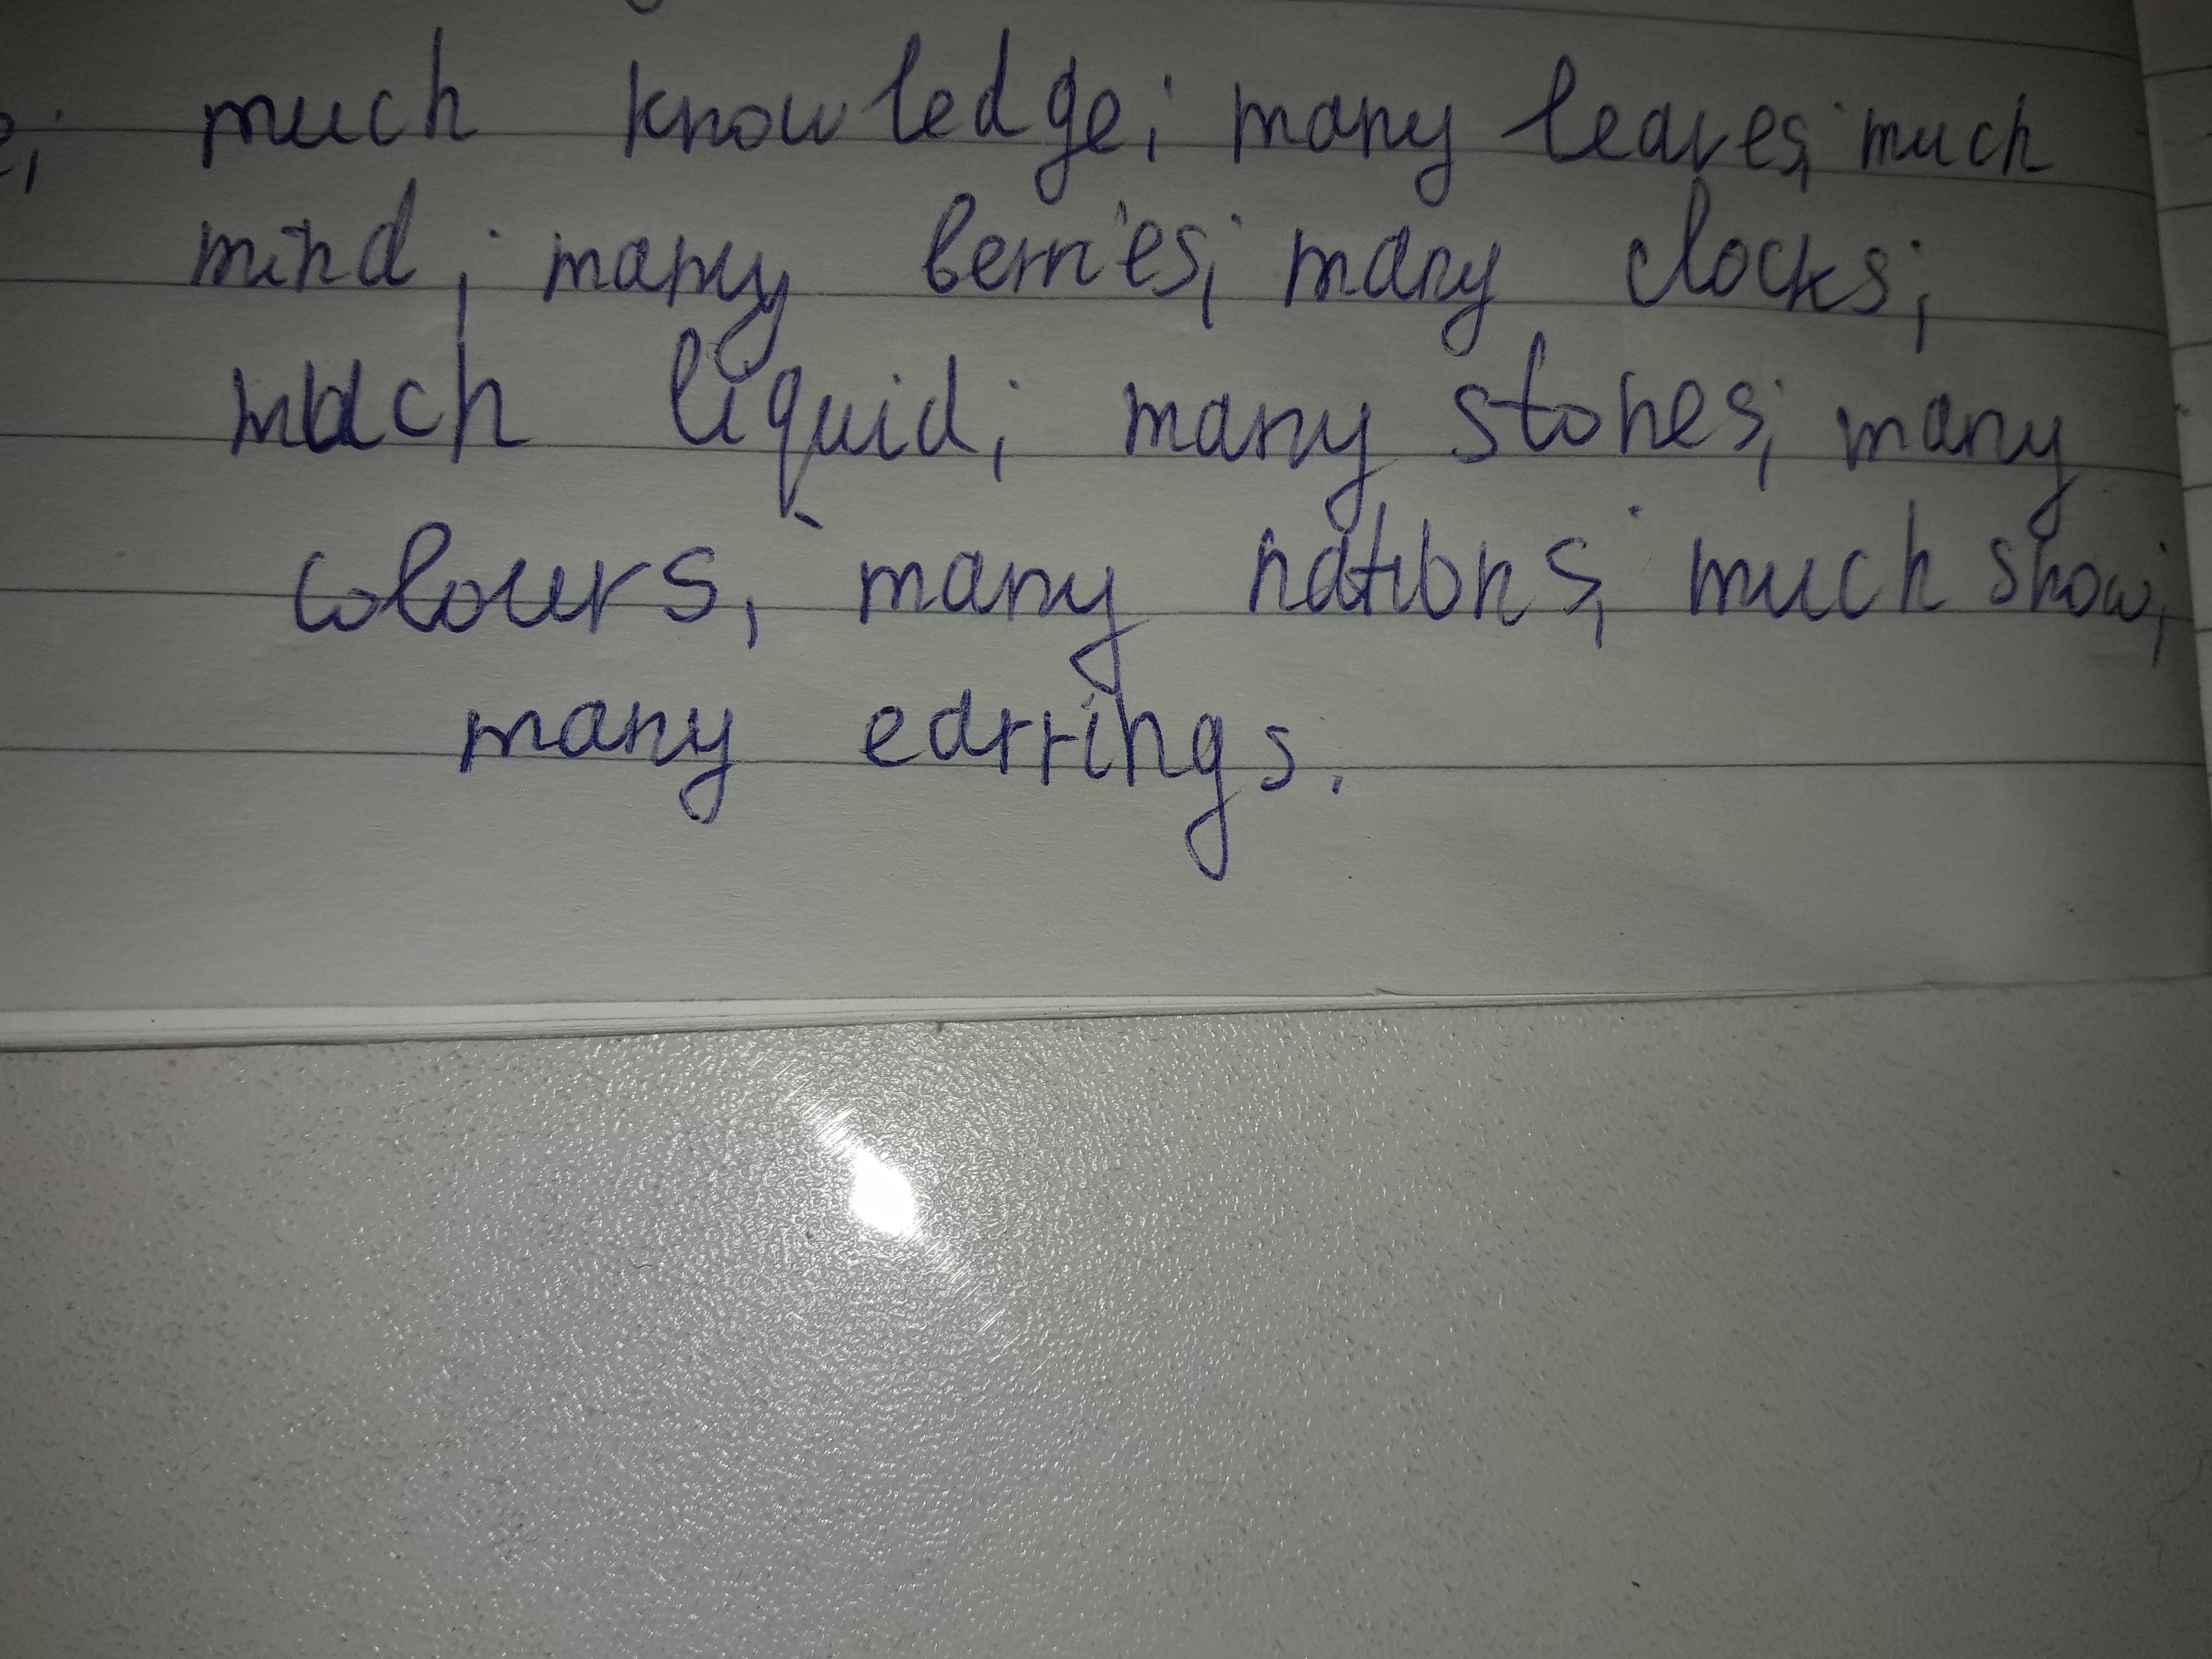 e; much knowledge; many leaves; much
mind; many berries; many clocks;
much liquid; many stones; many
colours, many nations; much snow;
many earrings.